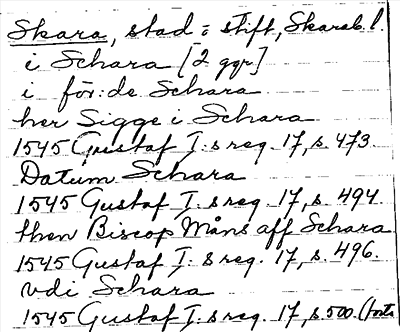 Skara, stad o stift, Skarab. l.
i Schara [2 ggr]
i för:de Schara
her Sigge i Schara
1545 Gustaf I:s reg. 17, s. 473.
Datum Schara
1545 Gustaf I:s reg. 17, s. 494.
then Biscop Måns aff Schara
1545 Gustaf I:s reg. 17, s. 496.
vdi Schara
1545 Gustaf I:s reg. 17, s. 500. (forts